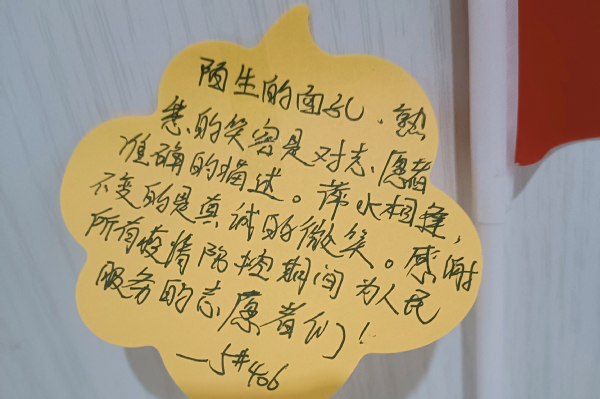 陌生的面孔、熟
悉的笑容是对志愿者
准确的描述。萍水相逢,
不变的是真诚的微笑。感谢
所有疫情防控期间为人民
服务的志愿者们!
—5#406